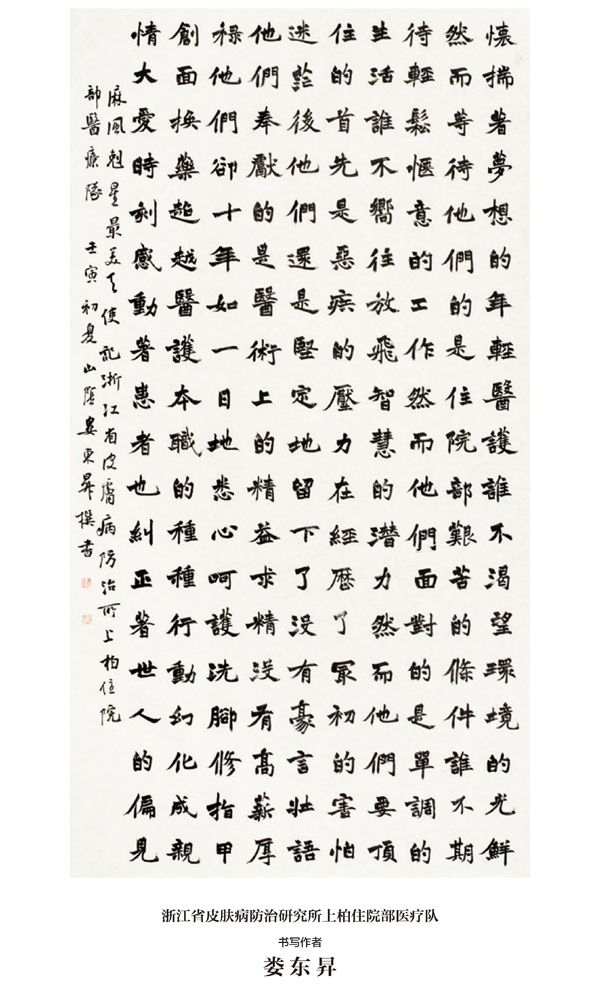 懷揣著夢想的年輕醫護誰不渴望環境的光鮮
然而等待他們的是住院部艱苦的條件誰不期
待輕鬆愜意的工作然而他們面對的是單調的
生活誰不嚮往放飛智慧的潛力然而他們要頂
住的首先是惡疾的壓力在經歷了最初的害怕
迷茫後他們還是堅定地留下了沒有豪言壯語
他們奉獻的是醫術上的精益求精沒有高薪厚
祿他們卻十年如一日地悉心呵護洗腳修指甲
創面換藥超越醫護本職的種種行動幻化成親
情大愛時刻感動著患者也糾正著世人的偏見
麻風剋星最美天使記浙江省皮膚病防治所上柏住院
部醫療隊 壬寅初夏山陰婁東昇撰書
浙江省皮肤病防治研究所上柏住院部医疗队
书写作者
娄东昇